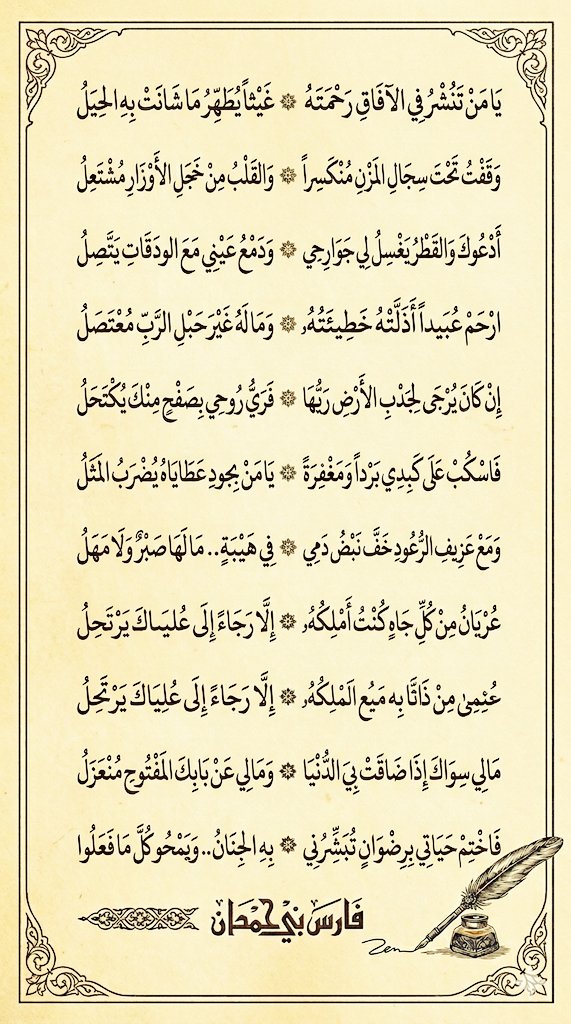 يَا مَنْ تَنْشُرُ فِي الآفَاقِ رَحْمَتَهُ ۞ غَيْثاً يُطَهِّرُ مَا شَانَتْ بِهِ الحِيَلُ
وَقَفْتُ تَحْتَ سِجَالِ المَزْنِ مُنْكَسِراً ۞ وَالقَلْبُ مِنْ خَجَلِ الأَوْزَارِ مُشْتَعِلُ
أَدْعُوكَ وَالقَطْرُ يَغْسِلُ لِي جَوَارِحِي ۞ وَدَمْعُ عَيْنِي مَعَ الودَقَاتِ يَتَّصِلُ
ارْحَمْ عُبَيداً أَذَلَّتْهُ خَطِيئَتُهُ ۞ وَمَا لَهُ غَيْرَ حَبْلِ الرَّبِّ مُعْتَصَلُ
إِنْ كَانَ يُرْجَى لِجَدْبِ الأَرْضِ رَيُّهَا ۞ فَرَيُّ رُوحِي بِصَفْحٍ مِنْكَ يُكْتَحَلُ
فَاسْكُبْ عَلَى كَبِدِي بَرْداً وَمَغْفِرَةً ۞ يَا مَنْ بِجُودِ عَطَايَاهُ يُضْرَبُ المَثَلُ
وَمَعْ عَزِيفِ الرُّعُودِ خَفَّ نَبْضُ دَمِي ۞ فِي هَيْبَةٍ.. مَا لَهَا صَبْرٌ وَلَا مَهَلُ
عُرْيَانُ مِنْ كُلِّ جَاهٍ كُنْتُ أَمْلِكُهُ ۞ إِلَّا رَجَاءً إِلَى عُليَاكَ يَرْتَحِلُ
مِنْ ذَاتَّا بِه مَيُع الَمْلِكُهُ ۞ إِلَّا رَجَاءً إِلَى عُلِيَاكَ يَرْتَحِّلُ
مَالِي سِوَاكَ إِذَا ضَاقَتْ بِيَ الدُّنْيَا ۞ وَمَالِي عَنْ بَابِكَ المَفْتُوحِ مُنْعَزَلُ
فَاخْتِمْ حَيَاتِي بِرِضْوَانٍ تُبَشِّرُنِي ۞ بِهِ الجِنَانُ.. وَيَمْحُو كُلَّ مَا فَعَلُوا
فَارسَ بني حَمْدَان